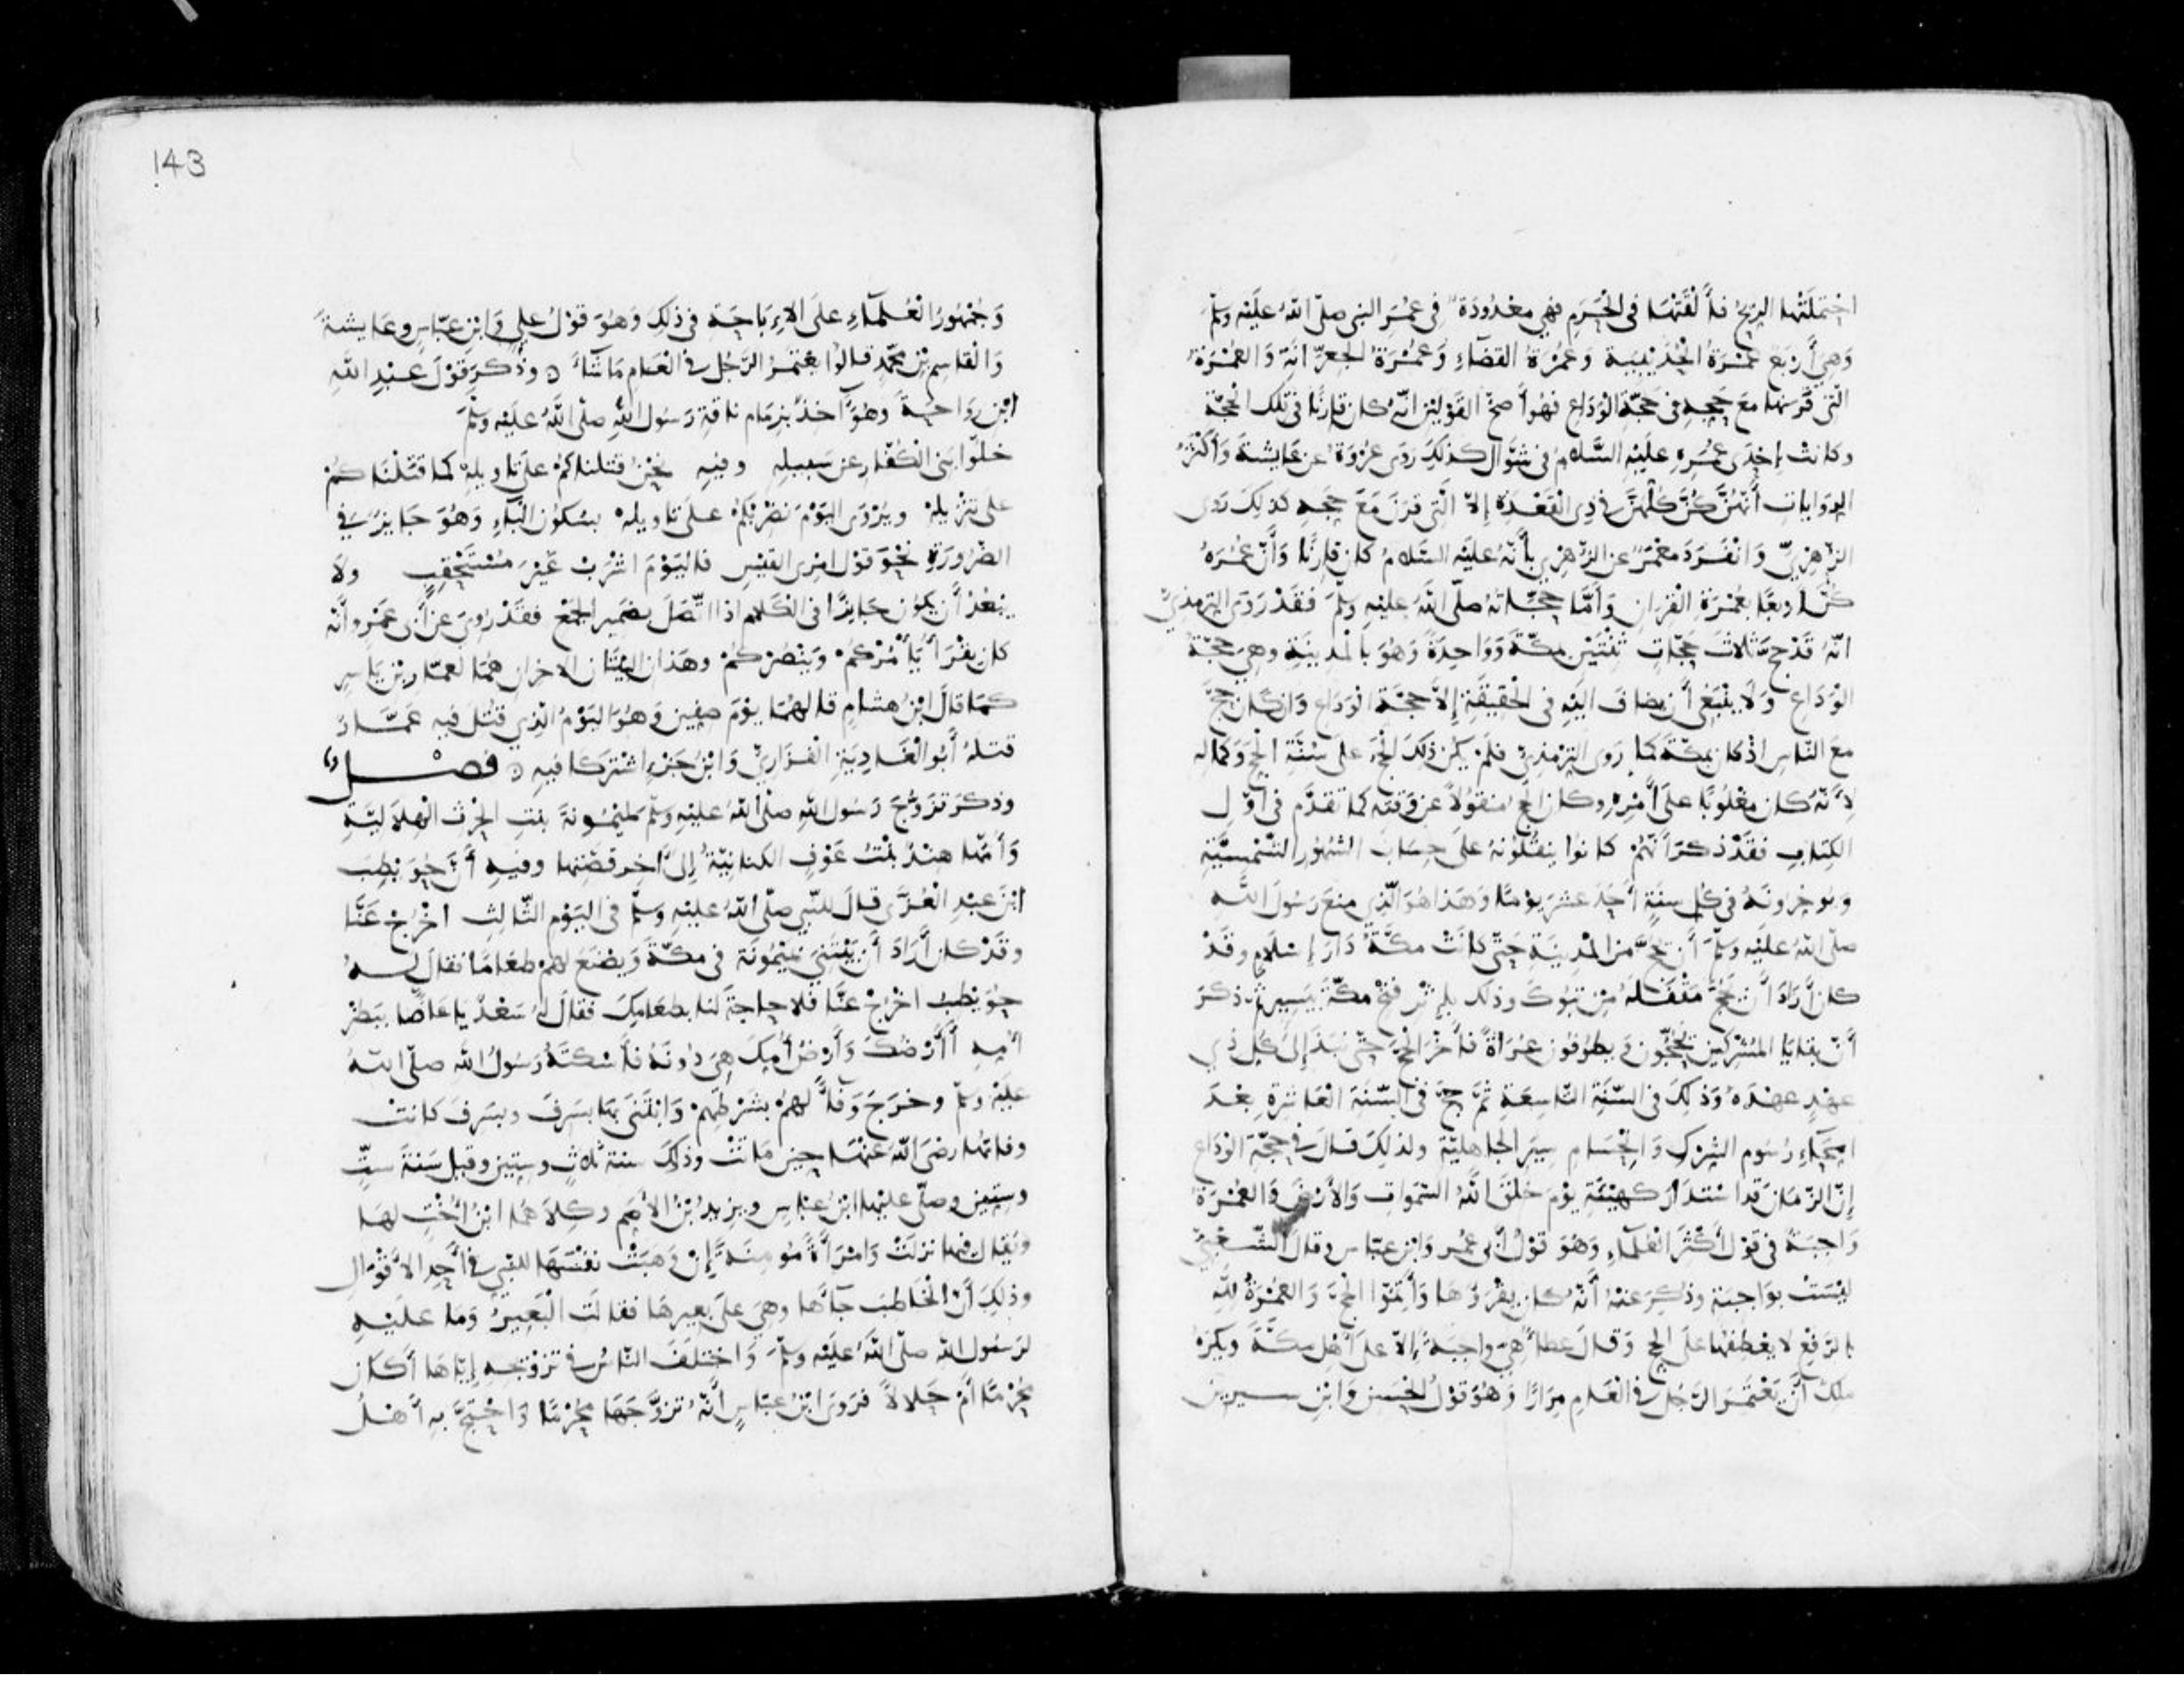 احْتَمَلَتْهَا الرِّيحُ فَأَلْقَتْهَا فِى الْحَرَمِ فهي معْدُودَةٌ فى عُمَرِ النبى صلّى اللهُ عليْه وسلّم
وَهِيَ أَرْبَعٌ عُمْرَةُ الْحُدَيْبِيَة وَعُمْرَةُ القضَآءِ وَعُمْرَةُ الجِعِرَّانَة وَالعُمْرَةُ
الّتى قَرَنهَا معَ حَجِّهِ فى حَجَّةِ الْوَدَاعِ فهُوَ أَصحّ القَوْلَيْنِ انّه كان قارِنًا فى تلك الْحجَّة
وكانتْ إحْدَى عُمَرِهِ عليْهِ السَّلام فى شوّال كذلِكَ رَوَى عُرْوَةُ عن عَايشةَ وَأَكْثَرُ
الرِوَاياتِ أَنَّهُنَّ كُنَّ كُلّهنَّ فى ذِى الْقَعْدَة إلاّ الَّتى قرَنَ مَعَ حَجِّهِ كذلِكَ رَوَى
الزُّهْرِيّ وَانْفَرَدَ معْمَرٌ عن الزُّهْرِي بأنّهُ عليْه السَّلامُ كان قارِنًا وَأنّ عُمَرَهُ
كُنَّ اربعًا بعُمْرَةِ القِرَان وَأَمَّا حَجَّاتهُ صلّى اللهُ عليْهِ وسلّم فقَدْ رَوَى التِرمذِيّ
انّهُ قَدْ حجّ ثلاثَ حَجّاتٍ ثِنْتَيْنِ بمكّةَ وَوَاحِدَةً وَهُوَ بالْمدينَةِ وهِيَ حَجّةُ
الْوَدَاعِ وَلا ينْبَغى أن يضافَ اليْهِ فى الْحقيقَةِ إلاَّ حجّة الْوَدَاع وَان كان حَجَّ
معَ النّاسِ اذْ كان بمكّةَ كما رَوَى التِرْمذيّ فلَمْ يكن ذلِكَ الحجّ علَى سُنَّةِ الْحج وَكَمالِه
لأنّهُ كان مغْلُوبًا علَى أَمْرِه وكان الحج منقُولاً عن وَقته كما تقدَّم فى أوّل
الكِتابِ فقَدْ ذُكرَ أنّهُمْ كانوا ينقُلُونهُ علَى حِسابِ الشهُورِ الشَّمْسيَّةِ
ويُوخِرونَهُ فى كلِ سنَةٍ أَحَدَ عشرَ يوْمًا وَهَذا هُوَ الّذِى منعَ رَسُولَ اللهِ
صلّى اللهُ عليْهِ وسلّم أن يحُجَّ منَ الْمدِينَةِ حَتّى كانَتْ مكّةُ دَارَ إسْلامٍ وقَدْ
كان أَرَادَ أن يحُجَّ مَقْفَلَهُ مِن تبوك وذلك باثر فتْحِ مكّةَ بيَسِيرٍ ثم ذكَرَ
أنّ بقايَا المُشْرِكين يحُجّون وَيطُوفون عُرَاةً فأَخّرَ الْحجّ حَتّى نبَذَ إلَى كلِ ذِي
عهْدٍ عهْدَه وَذلِكَ فى السّنَةِ التّاسِعَةِ ثُمّ حجّ فى السّنَة العَاشِرَةِ بعْدَ
امِّحَاءِ رُسُوم الشِرْك وَانْحِسَامِ سِيَرِ الجَاهليّةِ ولذلِكَ قالَ فى حجّةِ الْوَدَاعِ
إنّ الزّمَانَ قد اسْتدَارَ كهيْئَتِهِ يوْمَ خلَقَ اللهُ السّموَاتِ وَالأرْضَ وَالعُمْرَةُ
وَاجبَةٌ فى قوْلِ أكثَرِ العُلمآءِ وَهُوَ قوْلُ ابن عُمَر وَابن عبّاس وقالَ الشّعْبيّ
ليْسَتْ بوَاجبَةٍ وذُكِرَ عنْهُ أنّهُ كان يقْرَؤُهَا وَأَتِمّوا الْحجّ وَالعُمْرَةُ لِلّهِ
بالرّفْعِ لا يعْطِفُها علَى الحج وَقالَ عطآءٌ هِيَ واجبَةٌ إلاّ علَى أهْلِ مكّةَ ويكْرَهُ
ملكٌ أن يَعْتمِرَ الرّجُل فى الْعَامِ مِرَارًا وَهُوَ قوْلُ الْحَسَن وَابْنِ سيرين
وَجُمْهُورُ الْعُلَمآءِ علَى الإِبَاحَةِ فى ذلِكَ وَهُوَ قوْلُ علي وَابْنِ عبّاسٍ وعَايشةَ
وَالْقَاسِمِ بْنِ محمّدٍ قالوُا يعْتَمِرُ الرَّجُلُ فى الْعَامِ مَا شَآءَ وذُكرَ قوْلَ عبْدِ اللهِ
ابْنِ رَوَاحَةَ وهُوَ آخذٌ بزِمَام ناقةِ رَسُول اللهِ صلّى اللهُ عليْه وسلّم
خلّوا بَنى الْكُفّار عن سَبيلِهِ وفيهِ نحْنُ قتلناكمْ علَى تاويلهْ كما قتلْنَاكُمْ
علَى تنْزِيلهْ ويُرْوَى اليَوْمَ نضْرِبْكمْ علَى تاويلهْ بسُكونِ البَآءِ وَهُوَ جَايزٌ فى
الضّرُورَةِ نحْوَ قوْلِ امْرِئ القيْسِ فاليَوْمَ اشْرَبْ غيْرَ مُسْتَحْقِبٍ ولا
يبْعُدُ أن يكُون جَايزًا فى الْكَلامِ اذا اتَّصَلَ بضمِيرِ الْجَمْعِ فقَدْ رُوِيَ عن أبى عَمْرو أنّهُ
كان يقْرَأُ يَأْمُرْكُمْ وَيَنْصُرْكُمْ وهَذَان البَيْتَان الاخرَان هُمَا لعمّارِ بْنِ يَاسِرٍ
كمَا قالَ ابْنُ هشامٍ قالهُمَا يوْمَ صِفين وَهُوَ اليَوْمُ الّذِي قُتلَ فيهِ عَمّارٌ
قتلهُ أَبُو الْغَادِيَةِ الْفَزَارِيّ وَابْنُ جَزْءٍ اشْتَرَكا فيهِ فصْلٌ
وذكرَ تزَوُّجَ رَسُولِ اللهِ صلّى اللهُ عليْهِ وسلّم لميْمُونةَ بنتِ الحِرْث الهِلالِيَّةِ
وَأُمّها هنْدُ بنْتُ عَوْفٍ الكنانِيّةُ إلَى آخِرِ قصّتِها وفيهِ أنّ حُوَيْطِبَ
ابْنَ عبْدِ الْعُزَّى قالَ للنّبي صلّى اللهُ عليْهِ وسلّم فى اليَوْمِ الثّالِثِ اخْرُجْ عَنّا
وقَدْ كان أَرَادَ أن يَبْتَنِيَ بميْمُونَة فى مكّةَ وَيصْنَعَ لهمْ طعَامًا فقالَ لهُ
حُوَيْطِبُ اخْرُجْ عنّا فلا حاجةَ لنا بطعَامِكَ فقالَ لهُ سَعْدٌ يا عَاضًّا ببَظْرِ
أُمِهِ أَأَرْضُكَ وَأَرْضُ أُمِكَ هِيَ دُونَهُ فأَسْكتَهُ رَسُولُ اللهِ صلّى اللهُ
عليْه وسلّم وخرَجَ وَفآءً لهمْ بشَرْطهمْ وَابْتَنَى بهَا بسَرِفَ وبسَرِفَ كانتْ
وفاتُها رضِيَ اللهُ عنْهَا حِين مَاتَتْ وذلِكَ سنةَ ثلاثٍ وستين وقيل سَنةَ ستٍّ
وستين وصلّى عليْها ابْنُ عبّاسٍ ويزِيدُ بْنُ الأصَم وكِلاهُمَا ابْنُ أُخْتٍ لهَا
ويُقال فيها نزلَتْ وَامْرَأَةً مُومِنةً إن وَهَبَتْ نفْسَهَا للنّبي فى أَحَدِ الأَقْوَال
وذلِكَ أنّ الْخَاطبَ جآءَها وهِيَ علَى بعيرِهَا فقالَتْ الْبَعيرُ وَمَا عليْهِ
لرَسُولِ الله صلّى اللهُ عليْه وسلّم وَاختَلَفَ النّاسُ فى تزْوِيجِهِ إيّاهَا أَكان
مُحْرِمًا أَمْ حَلالاً فرَوَى ابْنُ عبّاسٍ أنّهُ تزَوَّجَهَا مُحْرِمًا وَاحْتجَّ بِهِ أَهْلُ
143